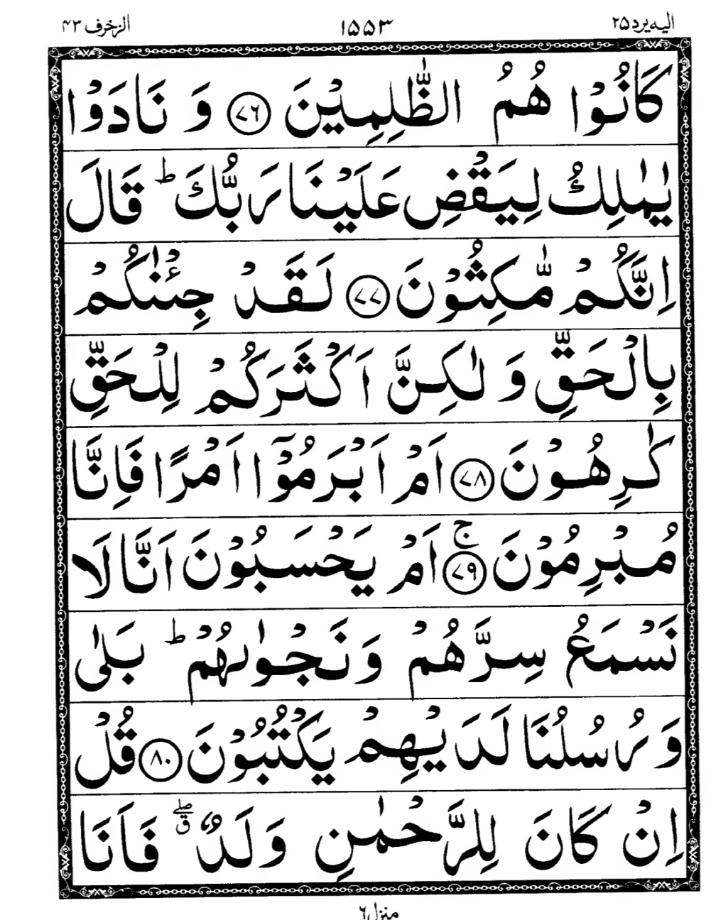 الیه یرد ۲۵ ۱۵۵۳ الزخرف ۴۳
كَانُوْا هُمُ الظّٰلِمِيْنَ ﴿۷۶﴾ وَ نَادَوْا
يٰمٰلِكُ لِيَقْضِ عَلَيْنَا رَبُّكَ ؕ قَالَ
اِنَّكُمْ مّٰكِثُوْنَ ﴿۷۷﴾ لَقَدْ جِئْنٰكُمْ
بِالْحَقِّ وَ لٰكِنَّ اَكْثَرَكُمْ لِلْحَقِّ
كٰرِهُوْنَ ﴿۷۸﴾ اَمْ اَبْرَمُوْۤا اَمْرًا فَاِنَّا
مُبْرِمُوْنَ ﴿۷۹﴾ۚ اَمْ يَحْسَبُوْنَ اَنَّا لَا
نَسْمَعُ سِرَّهُمْ وَ نَجْوٰىهُمْ ؕ بَلٰى
وَ رُسُلُنَا لَدَيْهِمْ يَكْتُبُوْنَ ﴿۸۰﴾ قُلْ
اِنْ كَانَ لِلرَّحْمٰنِ وَلَدٌ ۖۗ فَاَنَا
منزل ۶